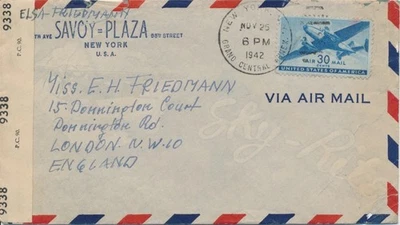 ELSA FRIEDMANN
5TH AVE SAVOY=PLAZA 58TH STREET
NEW YORK
U.S.A.
NEW YORK
NOV 25
6 PM
1942
GRAND CENTRAL
30
AIR MAIL
CENTS
UNITED STATES OF AMERICA
VIA AIR MAIL
Miss. E. H. FRIEDMANN
15. Donnington Court
Donnington Rd.
LONDON. N.W.10
ENGLAND
9338
P.C. 90.
9338
P.C. 90.
9338